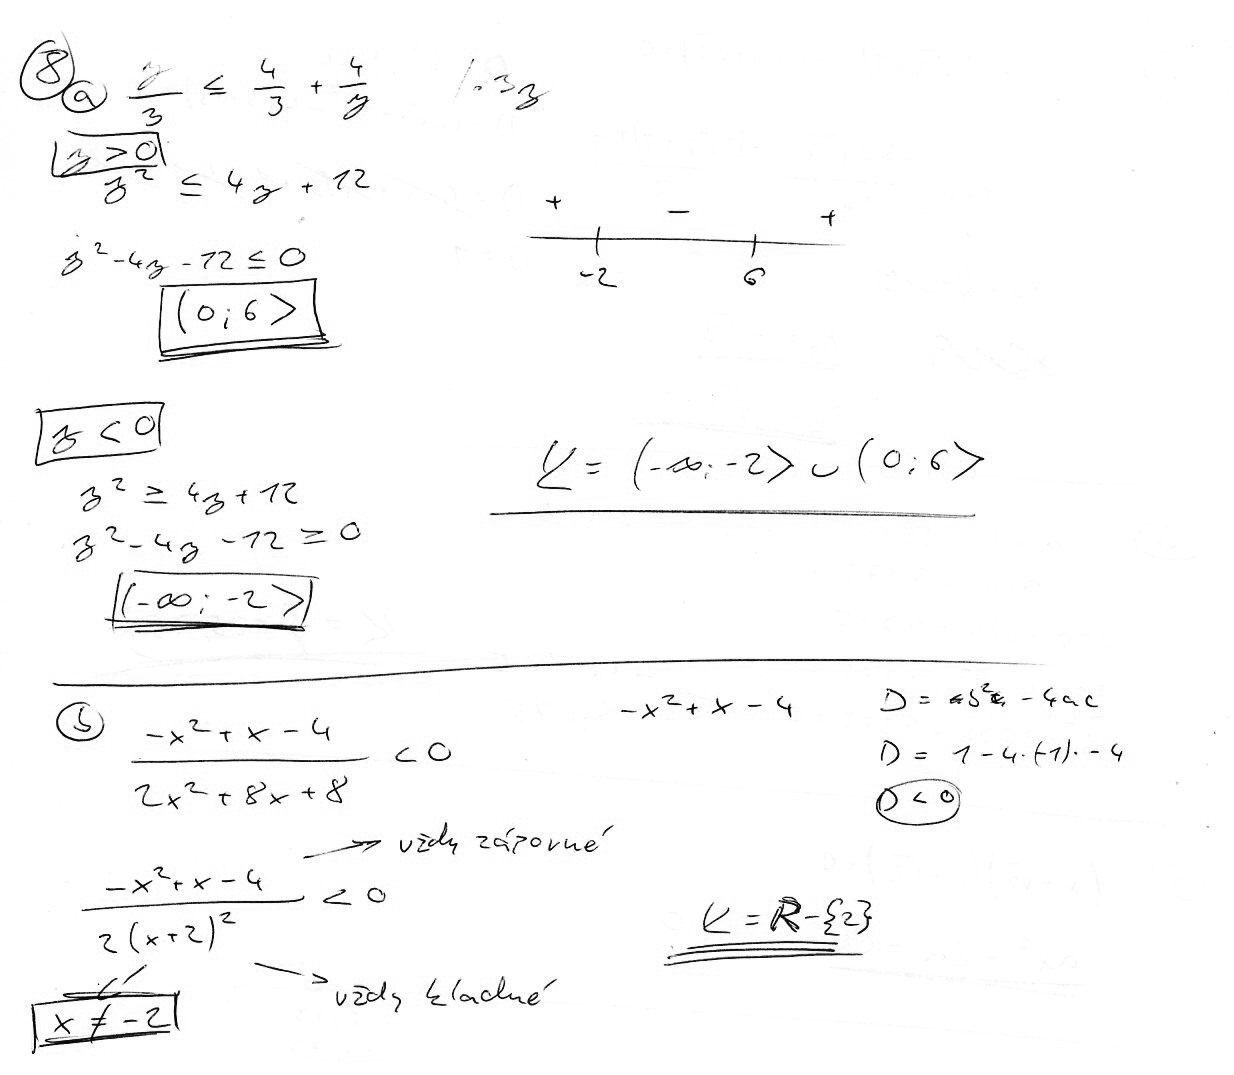 8 a y/3 ≤ 4/3 + 4/y /·3y
y > 0
y² ≤ 4y + 12
+ − +
-2 6
y² - 4y - 12 ≤ 0
(0; 6>
y < 0
y² ≥ 4y + 12
y² - 4y - 12 ≥ 0
(-∞; -2>
K = (-∞; -2> ∪ (0; 6>
b (-x² + x - 4)/(2x² + 8x + 8) < 0
-x² + x - 4
D = b² - 4ac
D = 1 - 4·(-1)·-4
D < 0
vždy záporné
(-x² + x - 4)/(2(x+2)²) < 0
vždy kladné
x ≠ -2
K = R - {2}